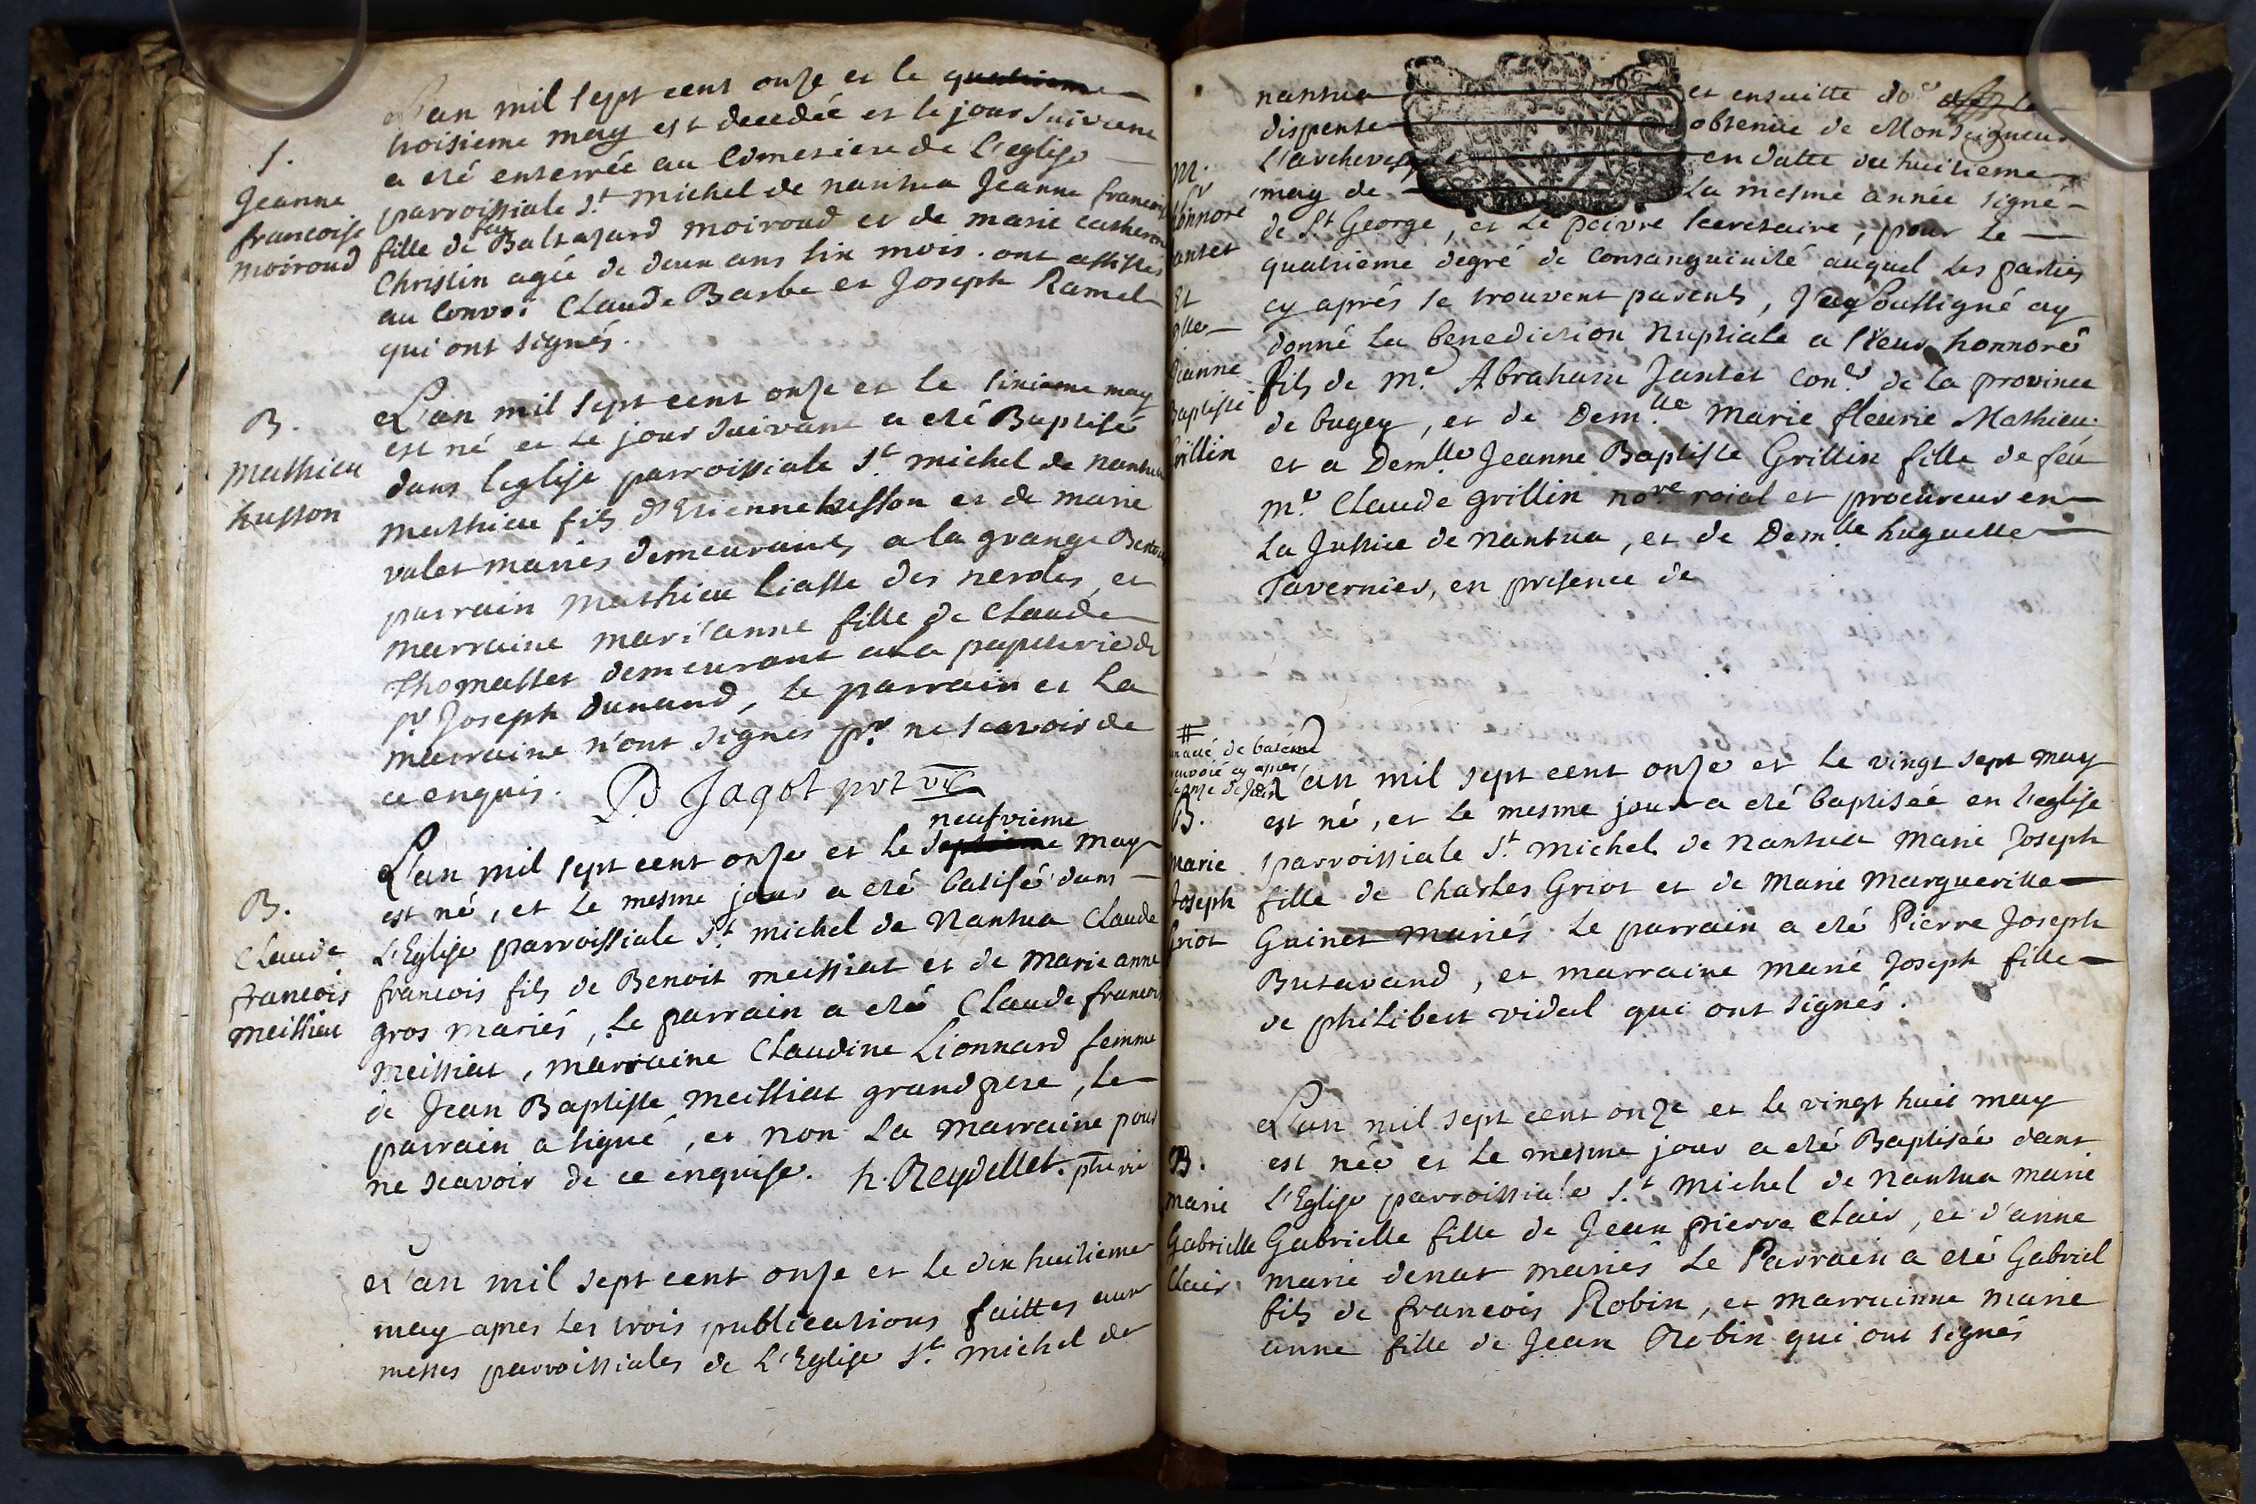 L'an mil sept cent onze et le quatrieme
S.
Jeanne
francoise
moiroud
troisieme may est decedée et le jour suivant
a eté enterrée au Cimetiere de L'eglise
parroissiale St michel de nantua Jeanne francoise
fille de feu Baltazard moiroud et de marie catherine
Christin agée de deux ans six mois. ont assistés
au Convoi Claude Barbe et Joseph Ramel
qui ont signés.
B.
Mathieu
husson
L'an mil sept cent onze et le sixieme may
est né et le jour suivant a eté Baptisé
dans leglise parroissiale St michel de nantua
mathieu fils d'Etienne husson et de marie
valet mariés demeurants a la grange
parrain mathieu liasse des neroles, et
marraine mari'anne fille de claude
Thomasset demeurant a la papeterie de
sr Joseph Dunand, le parrain et La
marraine n'ont signés pr. ne scavoir de
ce enquis. D. Jagot prt vic
neufvieme
B.
Claude
francois
meissiat
L'an mil sept cent onze et le septieme may
est né, et le mesme jour a eté batisé dans
L'Eglise parroissiale St michel de Nantua Claude
francois fils de Benoit meissiat et de Marie anne
gros mariés, Le parrain a eté Claude francois
meissiat, marraine Claudine Lionnard femme
de Jean Baptiste meissiat grandpere, le
parrain a signé, et non La marraine pour
ne scavoir de ce enquise. h. Reydellet. ptre vic
L'an mil sept cent onze et le dix huitieme
may apres les trois publications faittes aux
messes parroissiales de L'Eglise St michel de
nantua et ensuitte de la
dispense obtenüe de Monseigneur
L'archevesque en datte du huitieme
may de La mesme année signé
M.
sr
honnoré
Jantet
Et
dlle
Jeanne
Baptiste
Grillin
de St George, et Le Poivre secretaire, pour Le
quatrieme degré de Consanguinité auquel les parties
cy aprés se trouvent parents, J'ay soussigné ay
donné La benediction Nuptiale a sieur honnoré
fils de me. Abraham Jantet coner de la province
de bugey, et de Demlle Marie fleurie Mathieu
et a Demlle Jeanne Baptiste Grillin fille de feu
me. Claude grillin nore roial et procureur en
La Justice de Nantua, et de Demlle huguette
Tavernier, en presence de
# un acte de batéme
renvoié cy apres
le onze de Juin
B.
Marie
Joseph
Griot
L'an mil sept cent onze et le vingt sept may
est né, et le mesme jour a eté baptisée en l'eglise
parroissiale St michel de Nantua Marie Joseph
fille de Charles Griot et de Marie Marguerite
Guinet mariés. Le parrain a eté Pierre Joseph
Butavand, et marraine marie Joseph fille
de philibert vidal qui ont signés.
B.
Marie
Gabrielle
Clair
L'an mil sept cent onze et le vingt huit may
est née et le mesme jour a eté Baptisée dans
L'Eglise parroissiale St Michel de Nantua marie
Gabrielle fille de Jean pierre Clair, et d'anne
marie denat mariés Le Parrain a eté Gabriel
fils de francois Robin, et marrainne marie
anne fille de Jean Robin qui ont signés